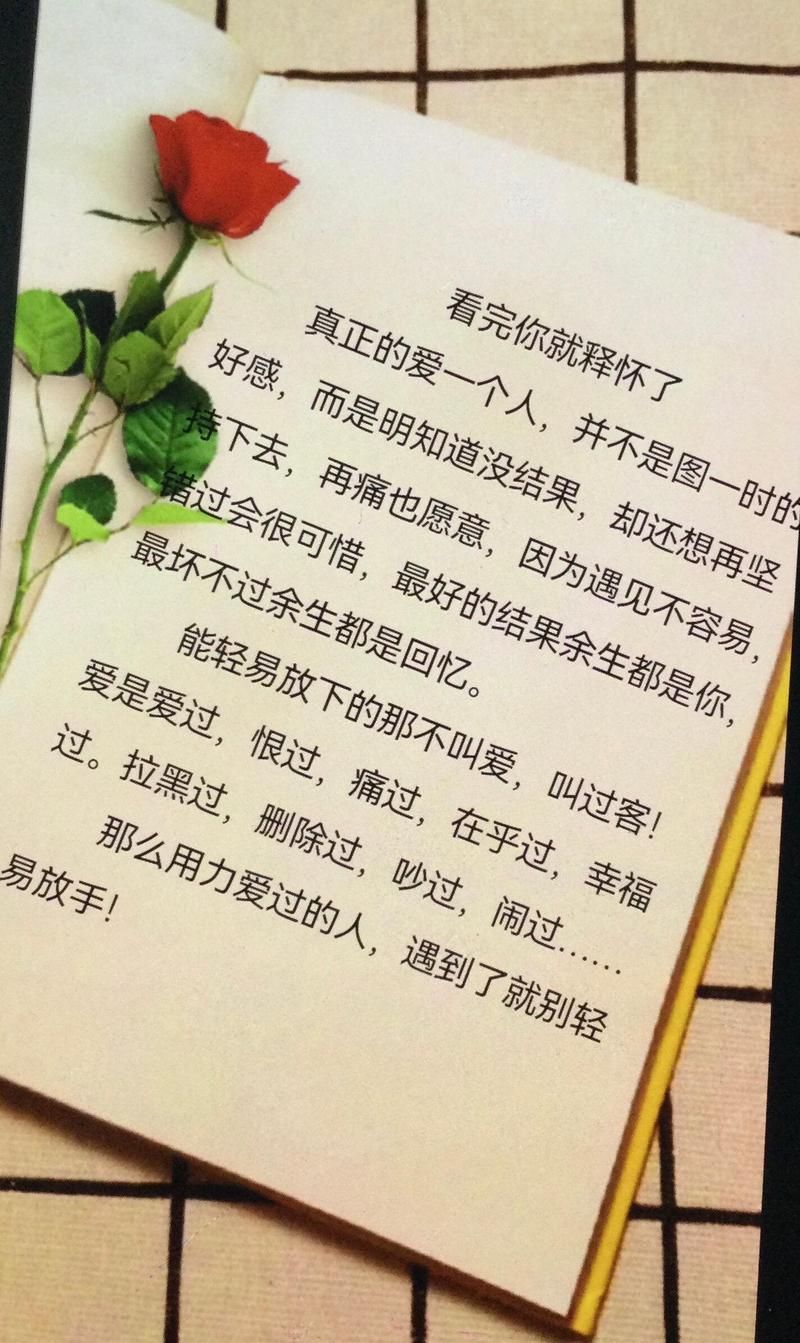 看完你就释怀了
真正的爱一个人，并不是图一时的
好感，而是明知道没结果，却还想再坚
持下去，再痛也愿意，因为遇见不容易，
错过会很可惜，最好的结果余生都是你，
最坏不过余生都是回忆。
能轻易放下的那不叫爱，叫过客！
爱是爱过，恨过，痛过，在乎过，幸福
过。拉黑过，删除过，吵过，闹过……
那么用力爱过的人，遇到了就别轻
易放手！